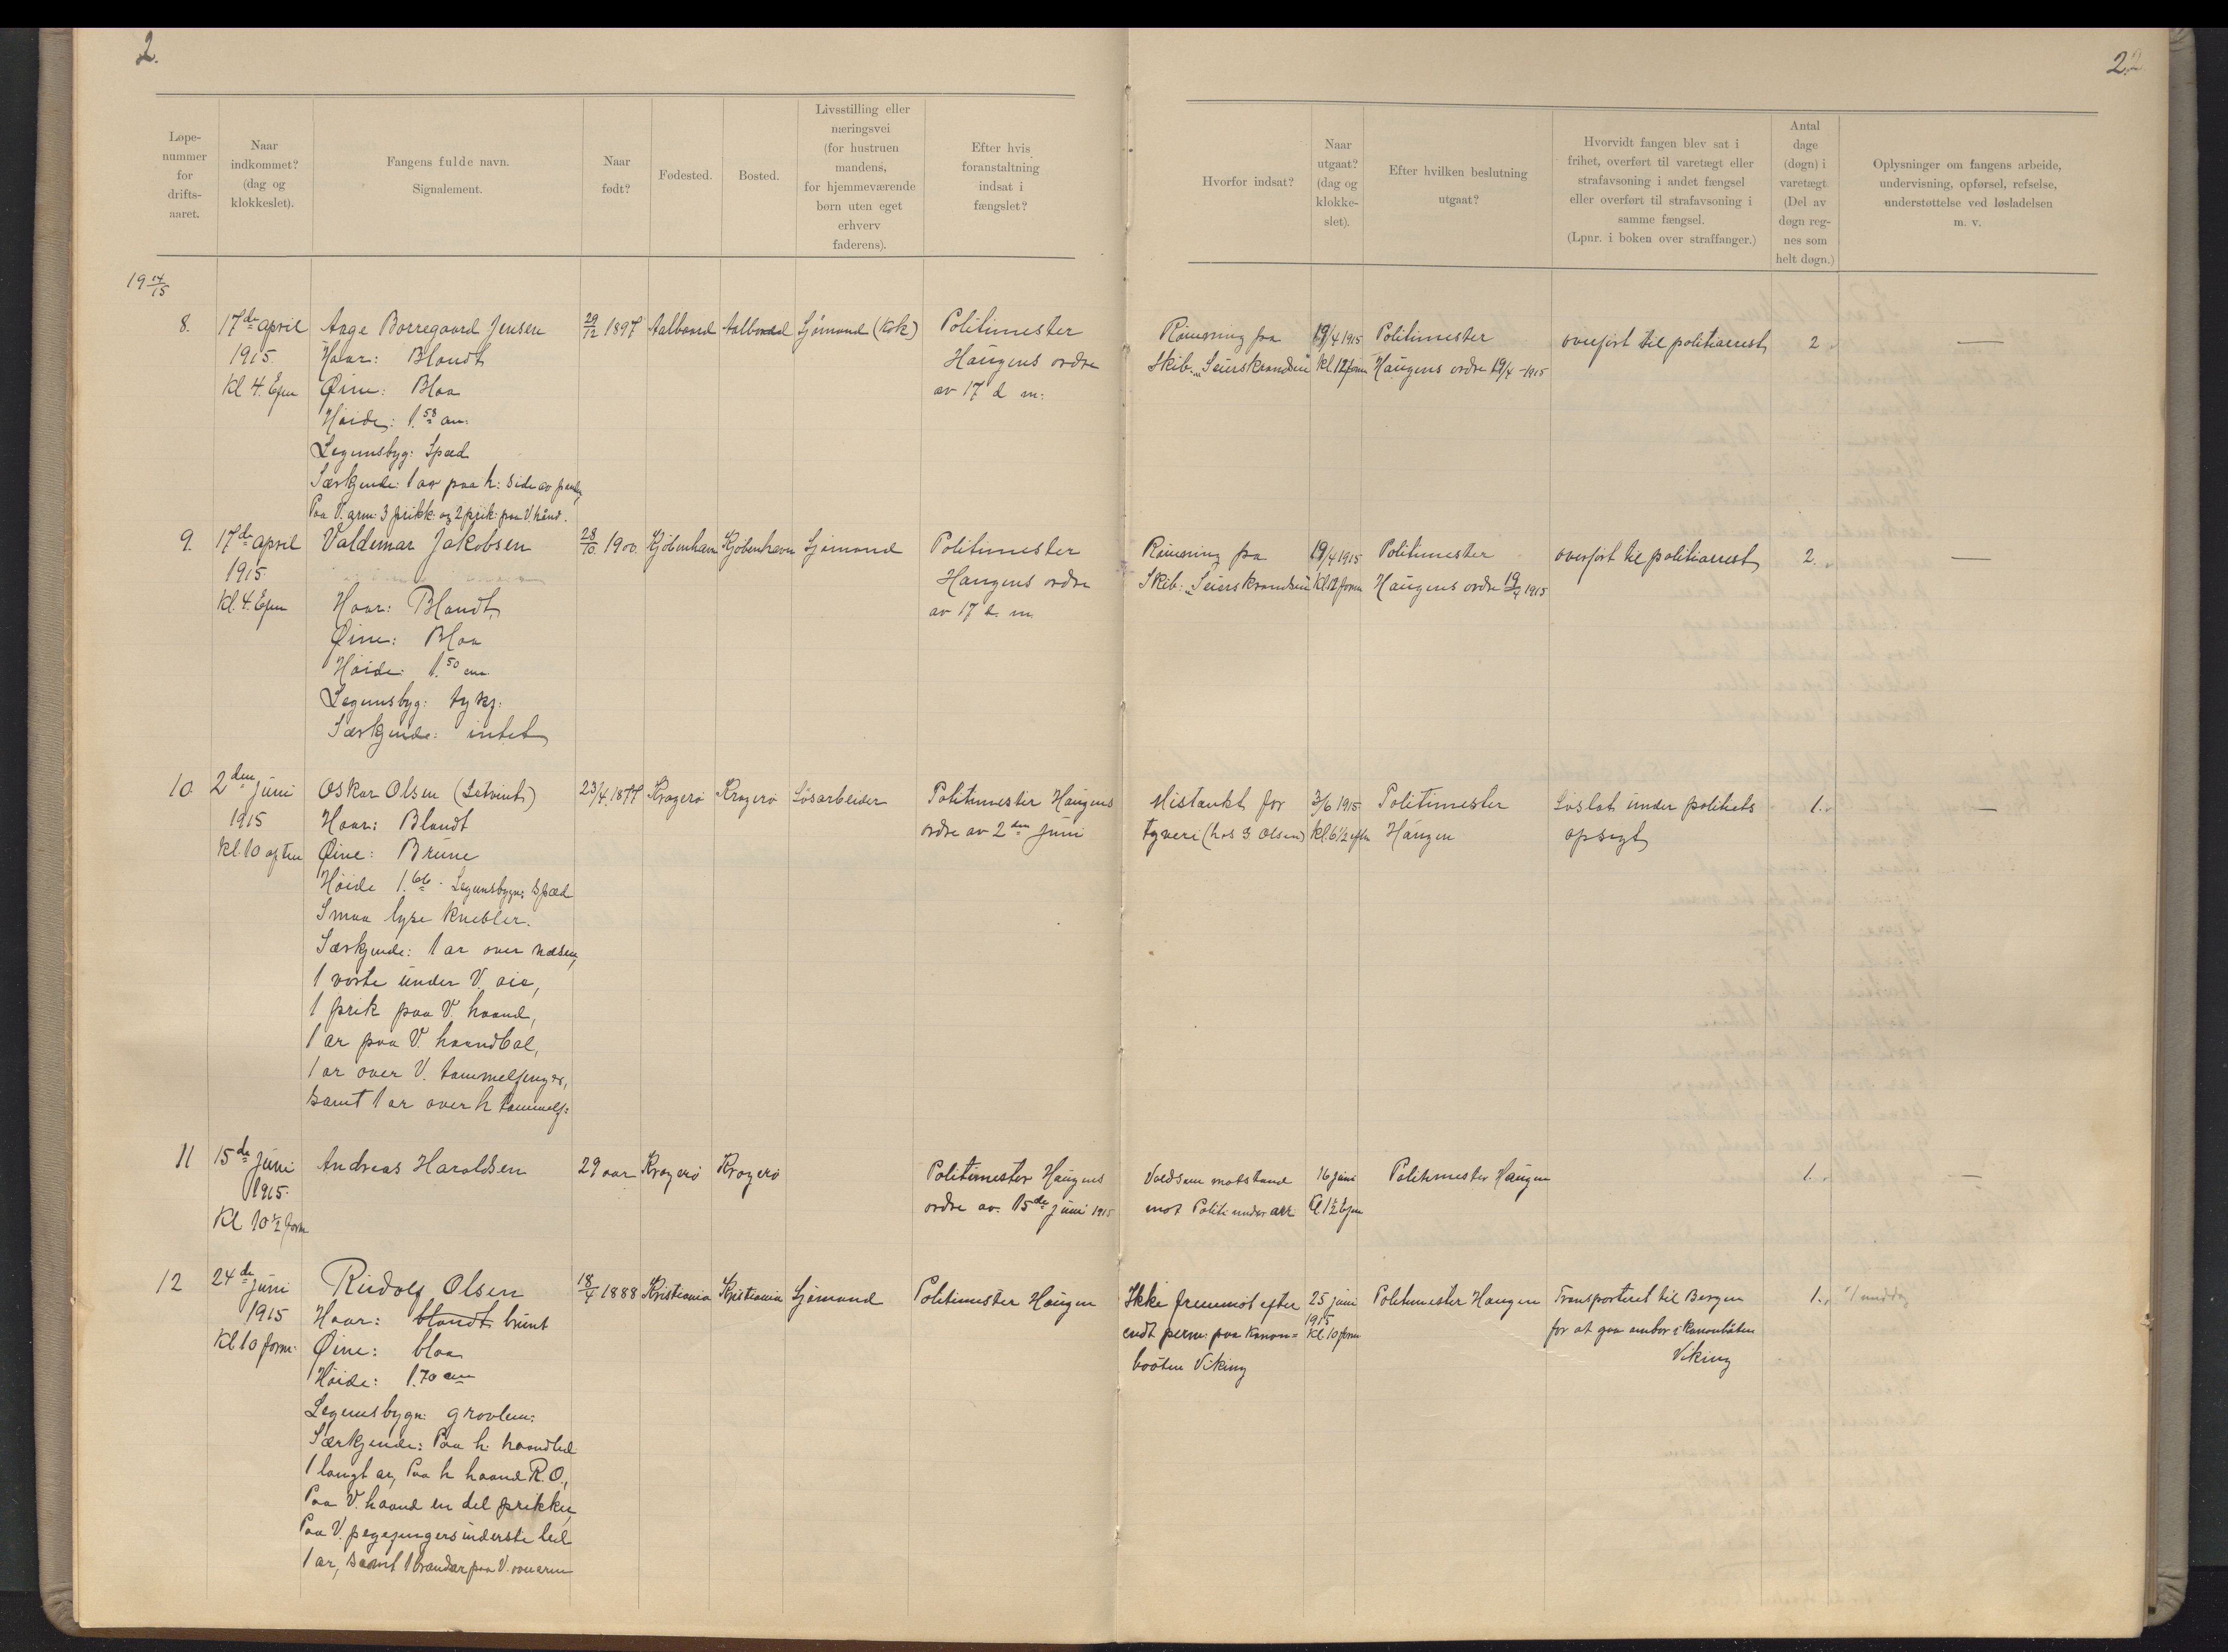 2.
22
Løpe-
nummer
for
drifts-
aaret.
Naar
indkommet?
(dag og
klokkeslet).
Fangens fulde navn.
Signalement.
Naar
født?
Fødested.
Bosted.
Livsstilling eller
næringsvei
(for hustruen
mandens,
for hjemmeværende
børn uten eget
erhverv
faderens).
Efter hvis
foranstaltning
indsat i
fængslet?
Hvorfor indsat?
Naar
utgaat?
(dag og
klokke-
slet).
Efter hvilken beslutning
utgaat?
Hvorvidt fangen blev sat i
frihet, overført til varetægt eller
strafavsoning i andet fængsel
eller overført til strafavsoning i
samme fængsel.
(Lpnr. i boken over straffanger.)
Antal
dage
(døgn) i
varetægt.
(Del av
døgn reg-
nes som
helt døgn.)
Oplysninger om fangens arbeide,
undervisning, opførsel, refselse,
understøttelse ved løsladelsen
m. v.
19 14/15
8.
17de april
1915.
Kl 4. Efm
Aage Borregaard Jensen
Haar: Blondt
Øine: Blaa
Høide: 1.58 cm.
Legemsbyg: Spæd
Særkjende: 1 ar paa h: side av
Paa V. arm: 3 prikk: og 2 prik: paa V. hånd.
29/12 1897
Aalborrd
Aalborrd
Sjømand (Kok)
Politimester
Haugens ordre
av 17 d m:
Rømning fra
Skib: „Seierskrandsen"
19/4 1915
Kl. 12 form
Politimester
Haugens ordre 19/4 -1915
overført til politiarrest
2
—
9.
17de april
1915.
Kl. 4. Efm
Valdemar Jakobsen
Haar: Blondt
Øine: Blaa
Høide: 1.50 cm.
Legemsbyg: tykj:
Særkjende: intet
28/10 1900.
Kjöbenhavn
Kjöbenhavn
Sjømand
Politimester
Haugens ordre
av 17 d. m
Rømning fra
Skib: „Seierskrandsen"
19/4 1915
Kl 12 form
Politimester
Haugens ordre 19/4 1915
overført til politiarrest
2.
—
10
2den juni
1915
Kl. 10 aften
Oskar Olsen (Letvint)
Haar: Blondt
Øine: Brune
Høide 1.66 - Legemsbygn: Spæd
Smaa lyse knebler.
Særkjende: 1 ar over næsen,
1 vorte under V. øie,
1 prik paa V. haand,
1 ar paa V. haandbal,
1 ar over V. tommelfinger,
samt 1 ar over h tommelf:
23/4 1877
Kragerø
Kragerø
Løsarbeider
Politimester Haugens
ordre av 2den Juni
Mistænkt for
tyveri (hos G. Olsen)
3/6 1915
kl. 6 1/2 efm
Politimester
Haugen
Løslat under politiets
opsigt
1.
—
11
15de juni
1915.
Kl 10 1/2 form
Andreas Haraldsen
29 aar
Kragerø
Kragerø
Politimester Haugens
ordre av. 15de juni 1915
Voldsom motstand
mot Politi under arr.
16 juni
Kl 1 1/2 Efm
Politimester Haugen
1.
—
12
24de juni
1915
Kl 10 form.
Rudolf Olsen
Haar: blondt brunt
Øine: blaa
Høide: 1.70 cm
Legemsbygn: grovlem:
Særkjende: Paa h: haandled
1 langt ar, Paa h haand R.O.,
Paa V. haand en del prikker,
Paa V. pegefingers inderste led
1 ar, samt 1 brandar paa V. overarm
18/4 1888
Kristiania
Kristiania
Sjømand
Politimester Haugen
Ikke fremmøt efter
endt perm: paa Kanon=
baaten Viking
25 juni
1915
Kl. 10 form
Politimester Haugen
Transporteret til Bergen
for at gaa ombor i Kanonbåten
Viking
1.
1/1 middag